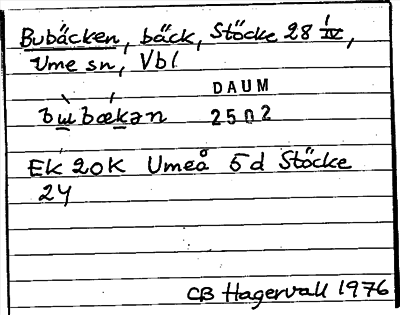 Bubäcken, bäck, Stöcke 28 IV,
Ume sn, Vbl
DAUM
bɯ̀bǽkən 2502
Ek 20K Umeå 5d Stöcke
24
CB Hagervall 1976